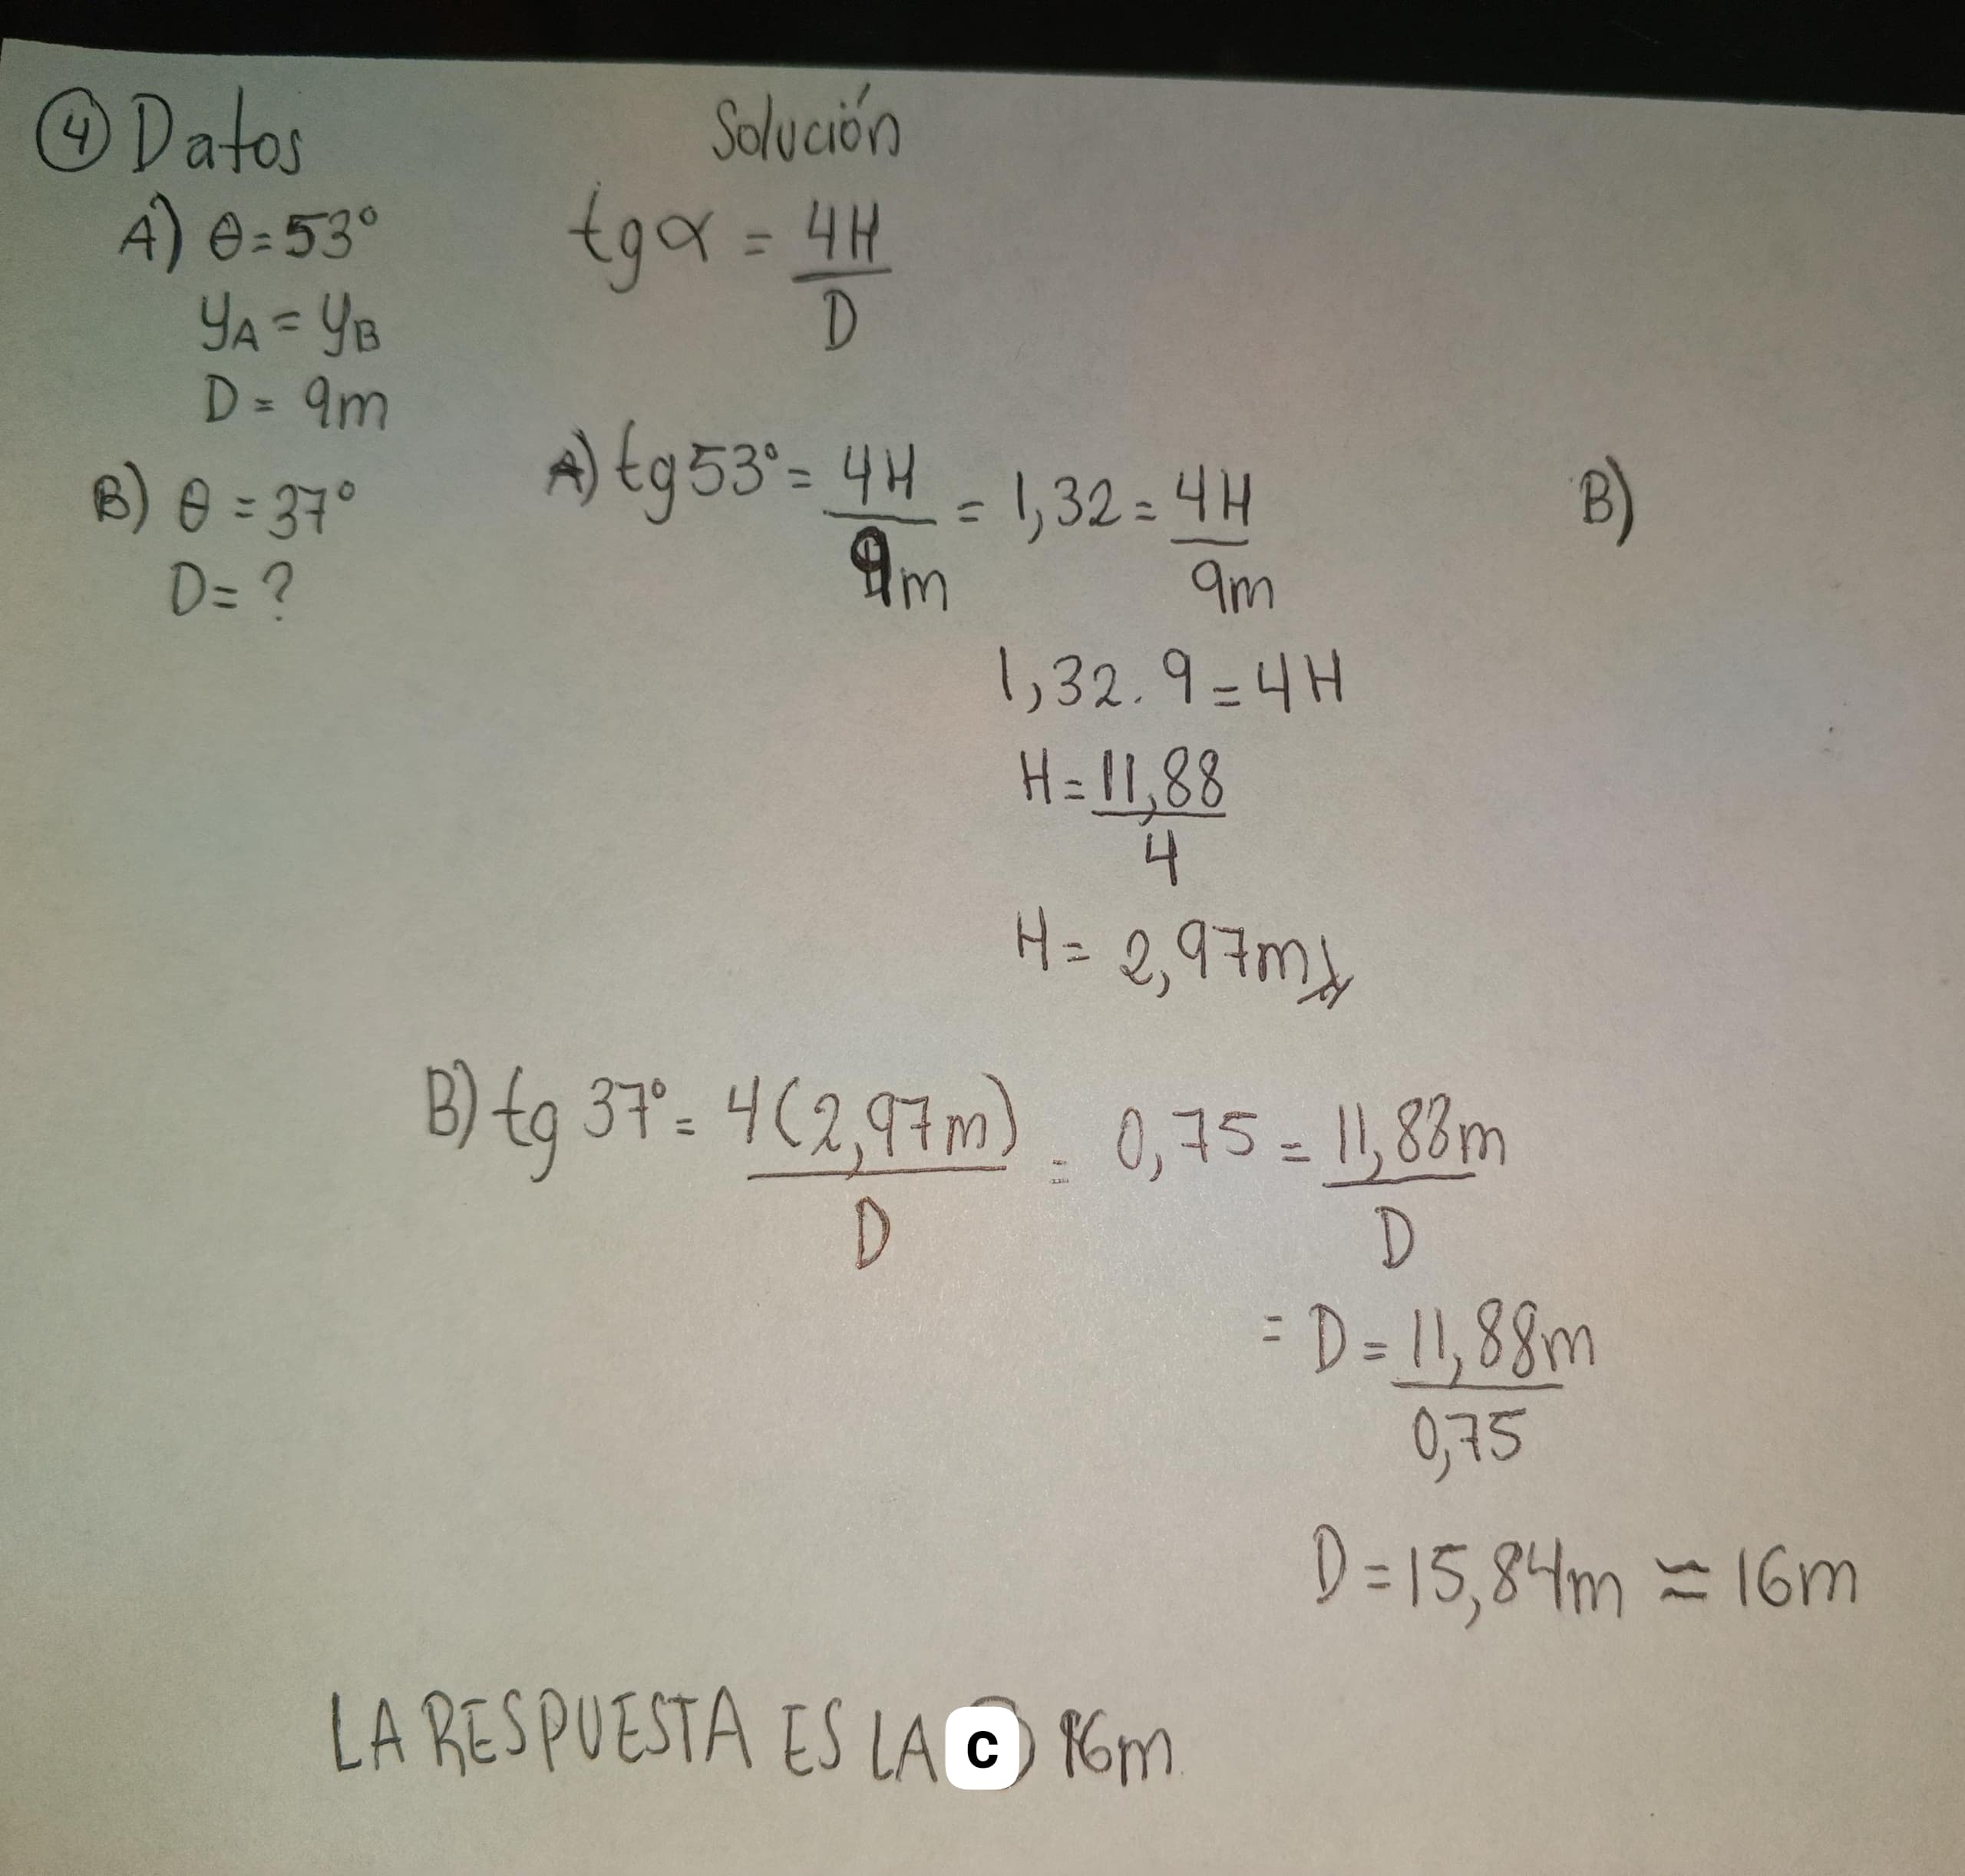 ④ Datos
Solución
A) θ = 53°
yA = yB
D = 9m
B) θ = 37°
D = ?
tg α = 4H / D
A) tg 53° = 4H / 9m = 1,32 = 4H / 9m
B)
1,32 . 9 = 4H
H = 11,88 / 4
H = 2,97m
B) tg 37° = 4(2,97m) / D = 0,75 = 11,88m / D
= D = 11,88m / 0,75
D = 15,84m ≈ 16m
LA RESPUESTA ES LA C) 16m